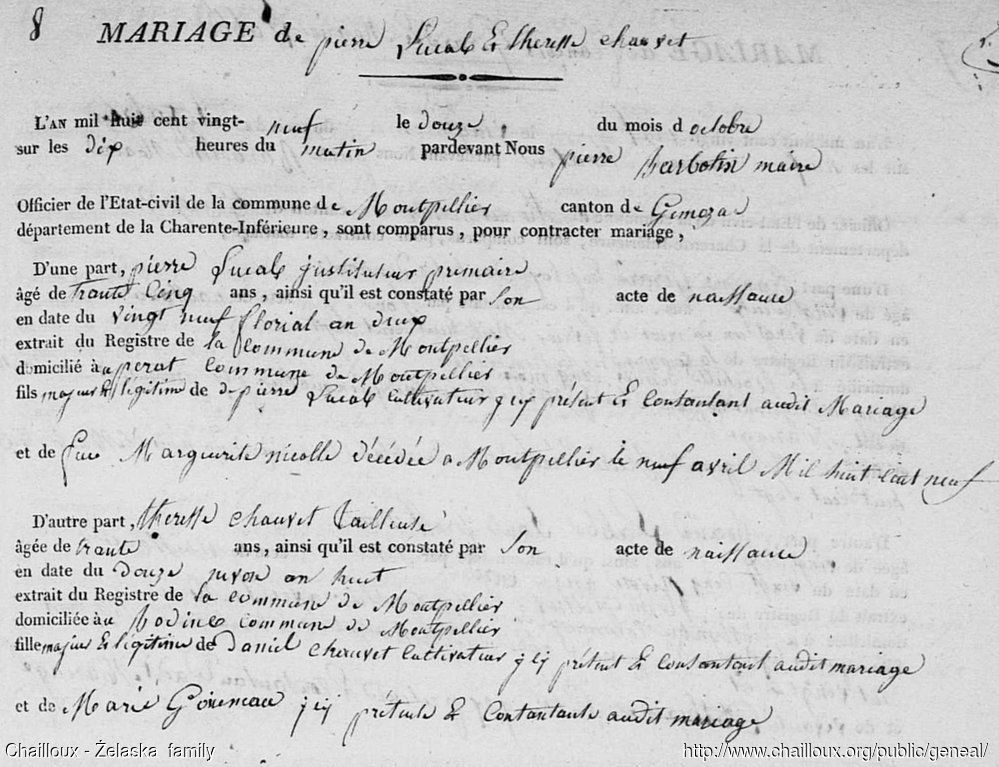 8 MARIAGE de pierre Lucal & theresse chauvet
L'AN mil huit cent vingt- neuf le douze du mois d octobre
sur les dix heures du matin pardevant Nous pierre Barbotin maire
Officier de l'Etat-civil de la commune de Montpellier canton de Gemoza
département de la Charente-Inférieure, sont comparus, pour contracter mariage,
D'une part, pierre Lucal justituteur primaire
âgé de trante Cinq ans, ainsi qu'il est constaté par son acte de naissance
en date du vingt neuf florial an deux
extrait du Registre de la Commune de Montpellier
domicilié à commune de Montpellier
fils majeur & légitime de de pierre Lucal Cultivateur y présent & Consantant audit Mariage
et de Marguerite nicolle décédée a Montpellier le neuf avril Mil huit Cent neuf
D'autre part, theresse chauvet tailleuse
âgée de trante ans, ainsi qu'il est constaté par son acte de naissance
en date du douze nivose an huit
extrait du Registre de la commune de Montpellier
domiciliée au commune de Montpellier
fille majeur & légitime de Daniel chauvet Cultivateur y présent & Consantant audit mariage
et de Marie y présente & Contantante audit mariage
Chailloux - Żelaska family http://www.chailloux.org/public/geneal/